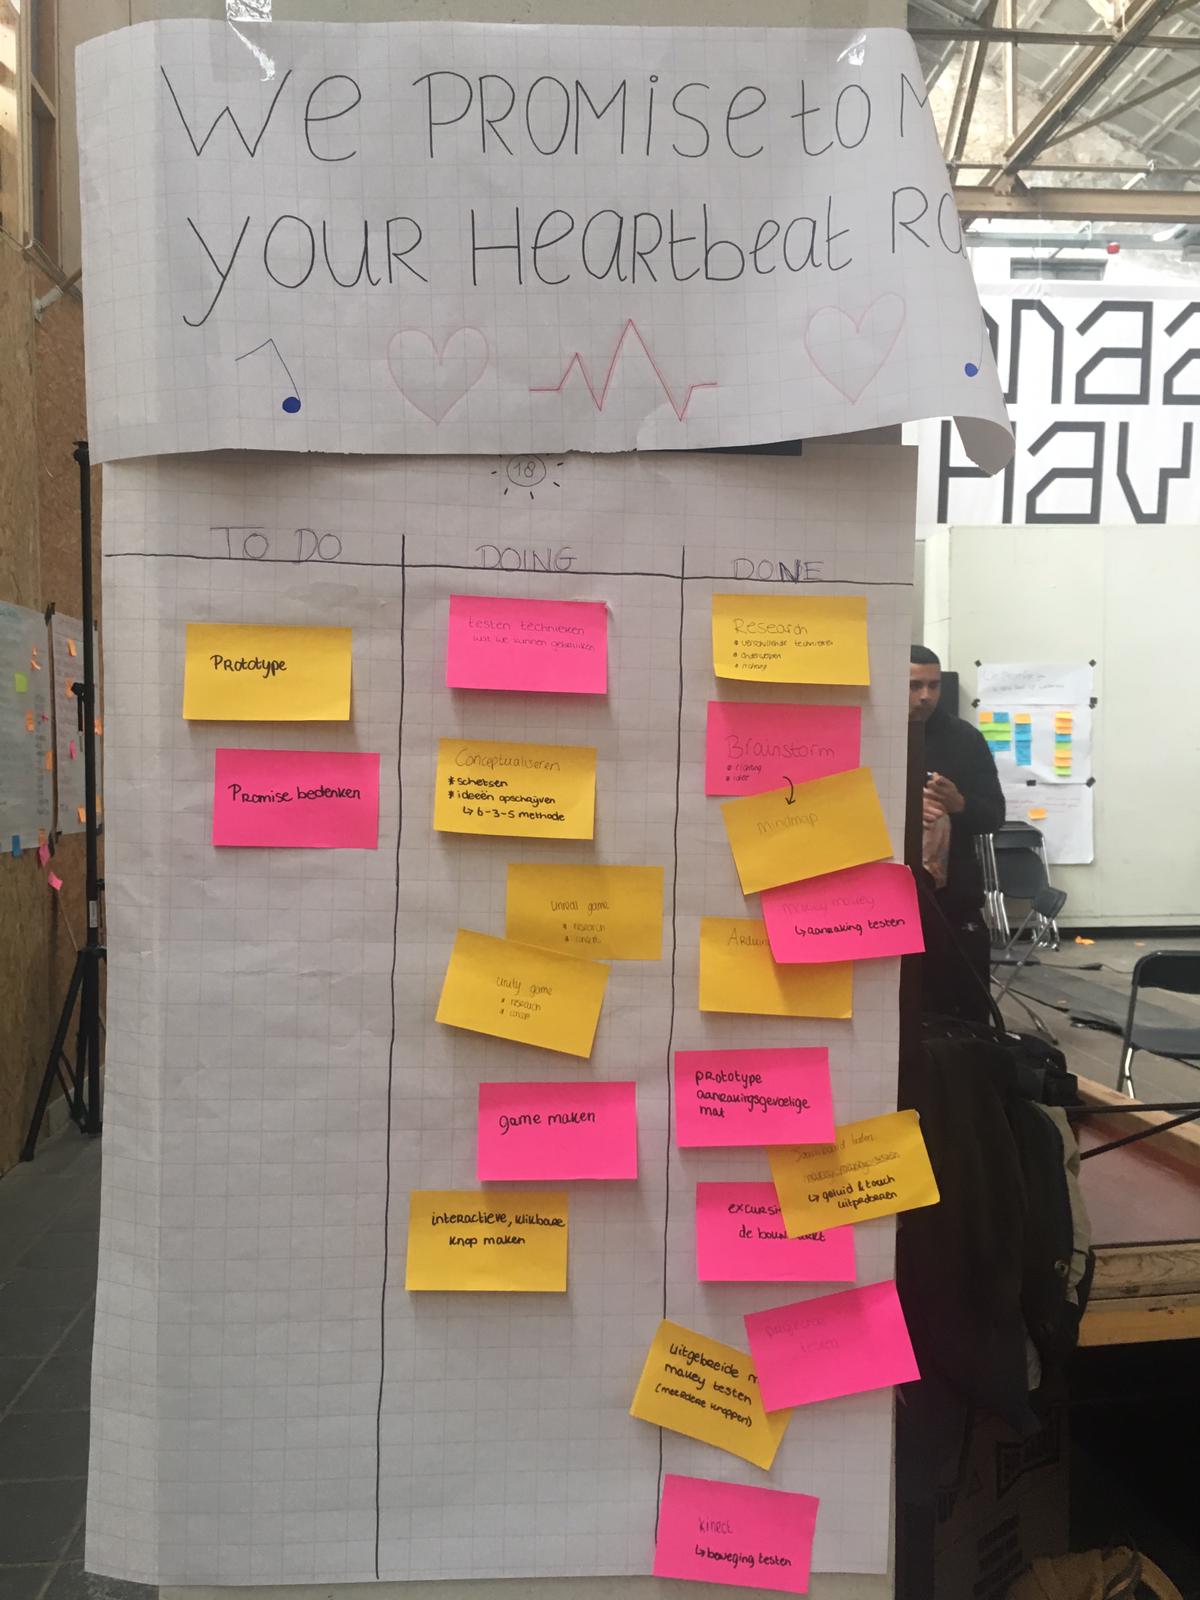 We PROMise to M
your Heartbeat Ro
18
TO DO
DOING
DONE
Prototype
Promise bedenken
testen technieken
wat we kunnen gebruiken
Conceptualiseren
* schetsen
* ideeën opschrijven
↳ 6-3-5 methode
unreal game
* research
* concept
unity game
* research
* concept
game maken
interactieve, klikbare
knop maken
Research
* verschillende technieken
* onderwerpen
* richting
Brainstorm
* richting
* idee
mindmap
makey makey
↳ aanraking testen
Arduin
prototype
aanrakingsgevoelige
mat
testen
↳ geluid & touch
uitproberen
excursi
de bou
projector
testen
uitgebreide m
makey testen
(meerdere knoppen)
kinect
↳ beweging testen
naa
Hav